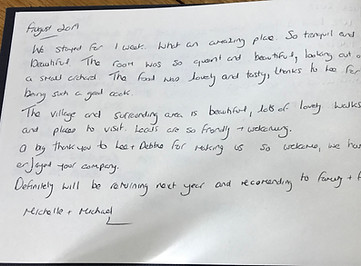 August 2019
We stayed for 1 week. What an amazing place. So tranquil and
beautiful. The room was so quaint and beautiful, looking out
a small orchard. The food was lovely and tasty, thanks to Lee for
being such a good cook.
The village and surrounding area is beautiful, lots of lovely walks
and places to visit. Locals are so friendly + welcoming.
a big thank you to Lee + Debbie for making us so welcome, we
enjoyed your company.
Definitely will be returning next year and recomending to family +
Michelle + Michael